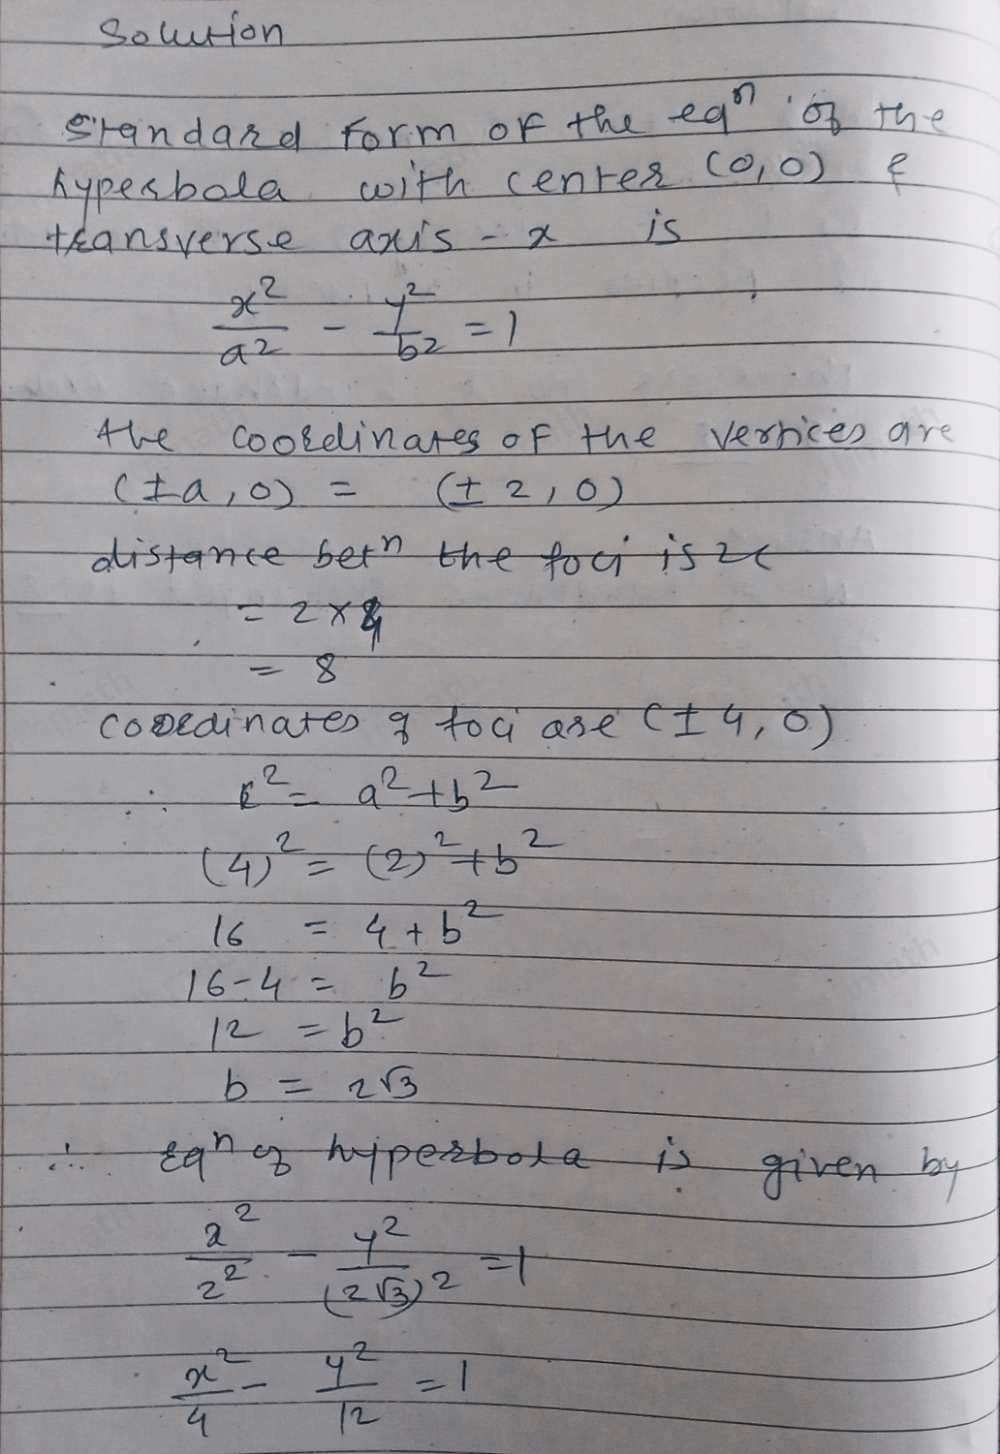 Solution
Standard form of the eqⁿ of the
hyperbola with center (0,0) &
transverse axis - x is
x²/a² - y²/b² = 1
the coordinates of the vertices are
(±a, 0) = (±2, 0)
distance betⁿ the foci is 2c
= 2 × 4
= 8
coordinates of foci are (±4, 0)
∴ c² = a² + b²
(4)² = (2)² + b²
16 = 4 + b²
16-4 = b²
12 = b²
b = 2√3
∴ Eqⁿ of hyperbola is given by
x²/2² - y²/(2√3)² = 1
x²/4 - y²/12 = 1